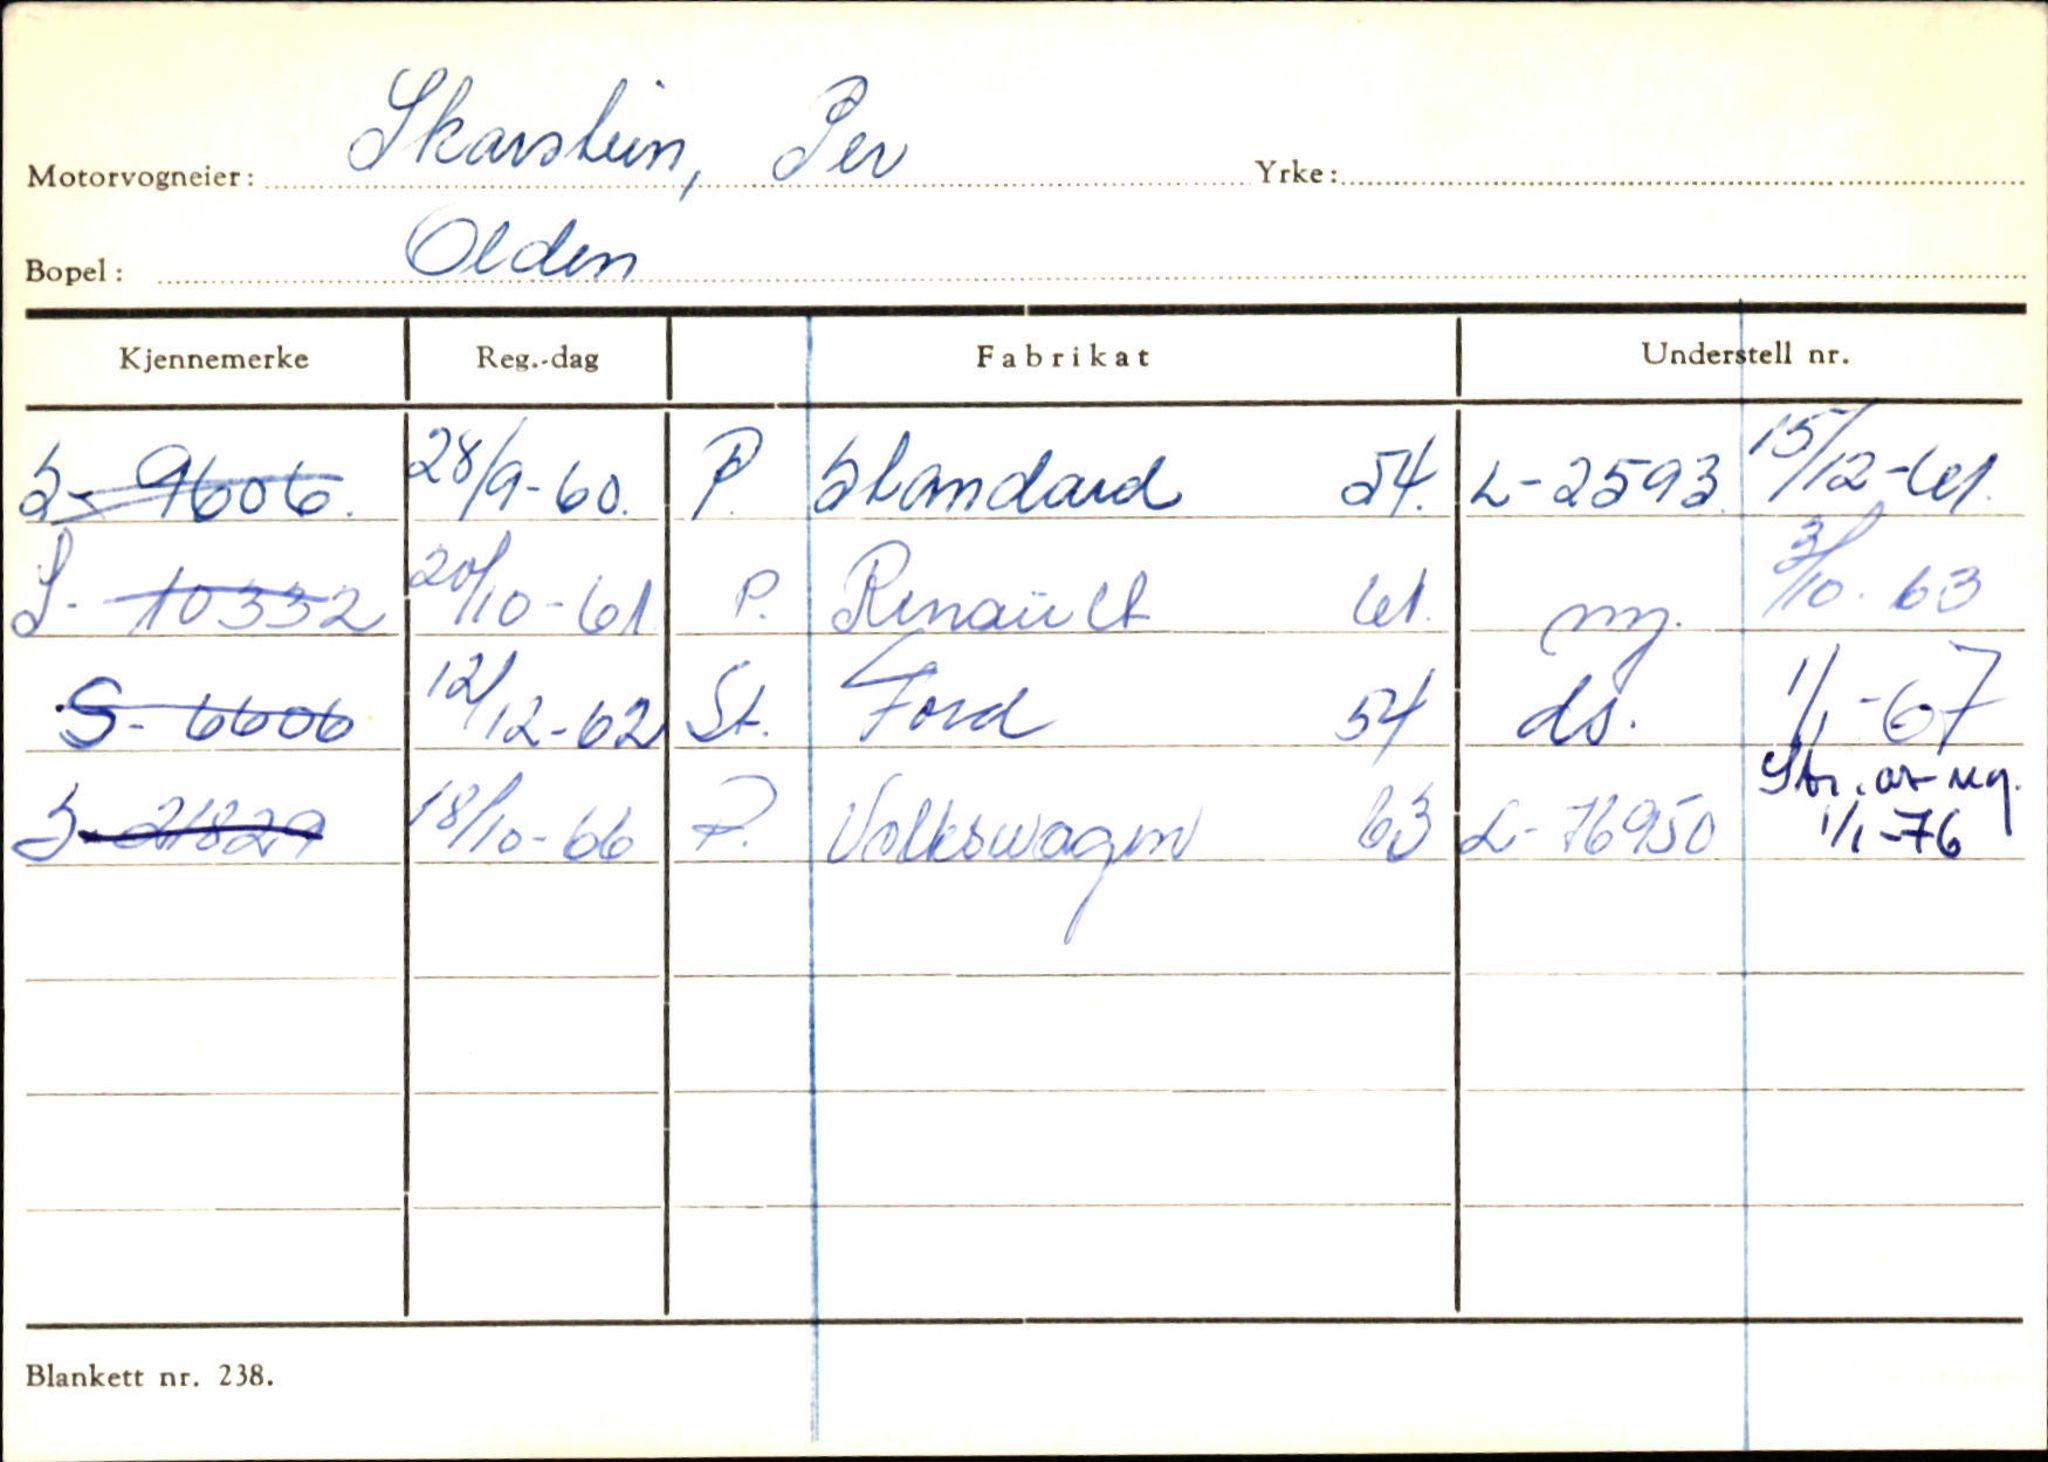 Motorvogneier: Skarstein, Per Yrke:
Bopel: Olden
Kjennemerke Reg.-dag Fabrikat Understell nr.
S- 9606. 28/9-60. P. Standard 54. L-2593. 15/12-61.
S- 10332 20/10-61. P. Renault 61. ny. 3/10.63
S- 6606 12/12-62 St. Ford 54 ds. 1/1-67
S-21829 18/10-66 P. Volkswagen 63 L-76950 Str. av reg. 1/1-76
Blankett nr. 238.